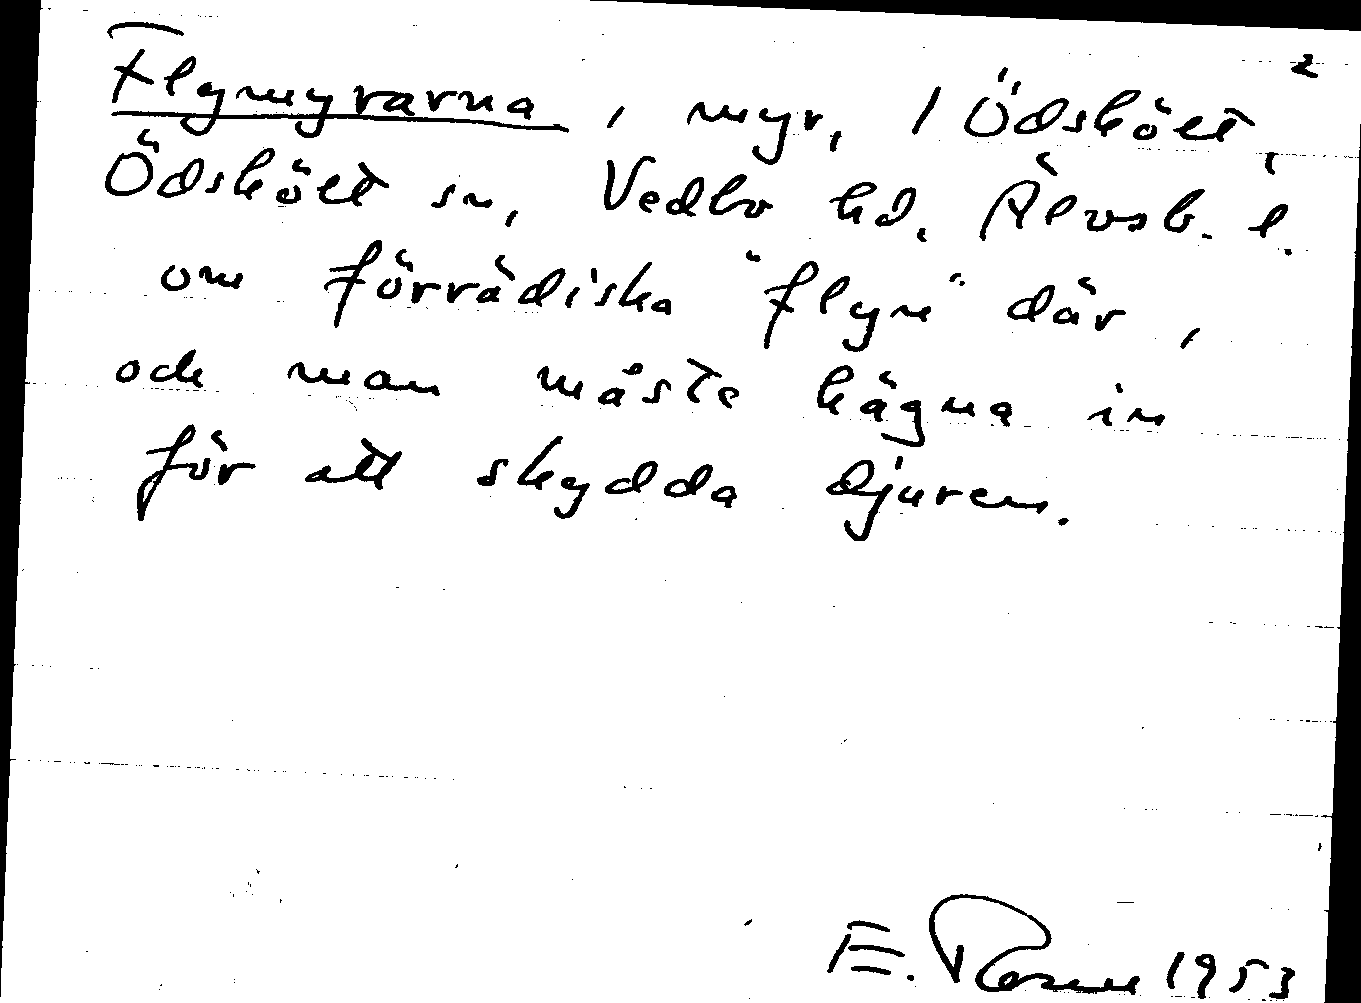 2
Flymyrarna, myr, 1 Ödskölt,
Ödskölt sn, Vedbo hd. Älvsb. l.
om förrädiska "flyn" där,
och man måste hägna in
för att skydda djuren.
E. Rosen 1953